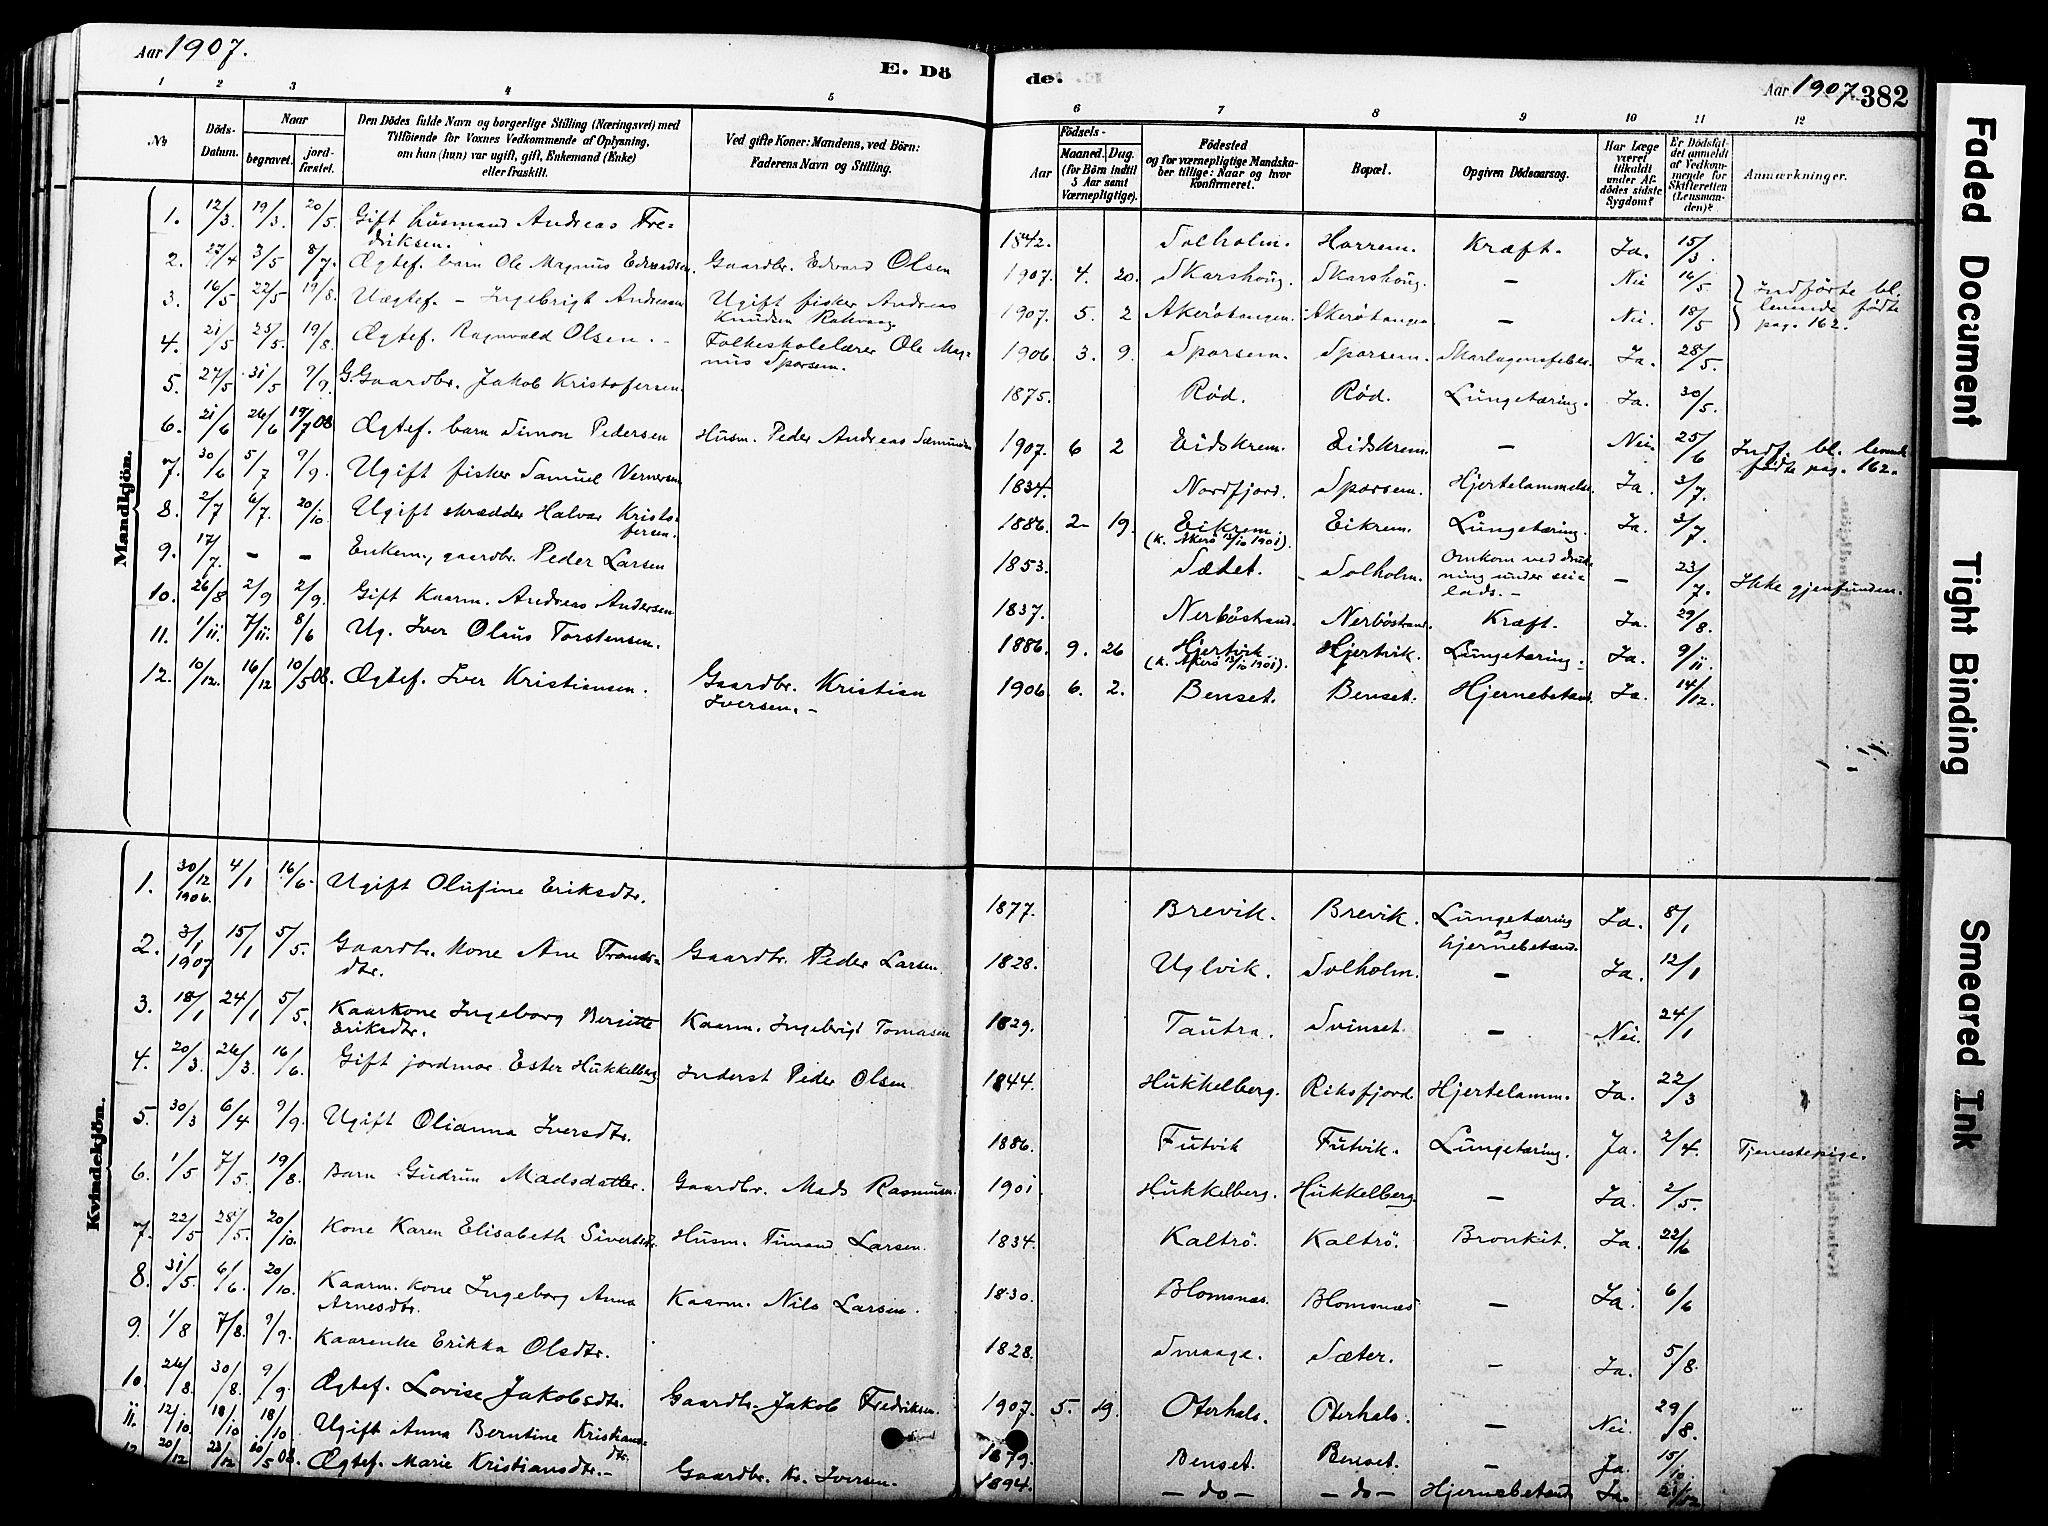 Aar 1907.
E. Dö
de.
Aar 1907. 382
1 2 3 4 5
6 7 8 9 10 11 12
No.
Döds-
Datum.
Naar
begravet.
jord-
fæstet.
Den Dödes fulde Navn og borgerlige Stilling (Næringsvei) med
Tilföiende for Voxnes Vedkommende af Oplysning,
om han (hun) var ugift, gift, Enkemand (Enke)
eller fraskilt.
Ved gifte Koner: Mandens, ved Börn:
Faderens Navn og Stilling.
Födsels-
Aar
Maaned.
Dag.
(for Börn indtil
5 Aar samt
Værnepligtige).
Födested
og for værnepligtige Mandska-
ber tillige: Naar og hvor
konfirmeret.
Bopæl.
Opgiven Dödsaarsag.
Har Læge
været
tilkaldt
under Af-
dödes sidste
Sygdom?
Er Dödsfal-
det anmeldt
af Vedkom-
mende for
Skifteretten
(Lensman-
den)?
Anmærkninger.
Mandkjön.
1. 12/3 19/3. 20/5. Gift husmand Andreas Fre-
driksen. 1842. Solholm. Harrem. Kræft. Ja. 15/3.
2. 27/4 3/5 8/7. Ægtef. barn Ole Magnus Edvardsen. Gaardbr. Edvard Olsen 1907. 4. 20. Skarshoug. Skarshoug. – Nei 16/5
3. 16/5 22/5 19/8. Uægtef. – Ingebrigt Andreassen Ugift fisker Andreas
Knudsen Rakvaag. 1907. 5. 2 Akerötangen. Akerötangen – Nei. 18/5
Indförte bl.
levende fødte
pag. 162.
4. 21/5 25/5. 19/8. Ægtef. Ragnvald Olsen. – Folkeskolelærer Ole Mag-
nus Sporsem. 1906 3. 9. Sporsem. Sporsem. Skarlagensfeber. Ja. 28/5.
5. 27/5 31/5 9/9. G. Gaardbr. Jakob Kristofersen. 1875. Rød. Rød. Lungetæring. Ja. 30/5.
6. 21/6 26/6 19/7 08 Ægtef. barn Simon Pedersen Husm. Peder Andreas 1907. 6 2 Eidskrem. Eidskrem. – Nei. 25/6 Indf. bl. levende
fødte pag. 162.
7. 30/6 5/7 9/9. Ugift fisker Samuel Vernersen 1834. Nordfjord. Sporsem. Hjertelammelse Ja. 3/7.
8. 2/7 6/7. 20/10 Ugift skrædder Halvar Kristo-
fersen. 1886. 2- 19. Eikrem.
(k. Akerö 13/10 1901). Eikrem. Lungetæring. Ja. 3/7.
9. 17/7. – – Enkem., gaardbr. Peder Larsen 1853. Sætet. Solholm. Omkom ved druk-
ning under sei-
lads. – – 23/7. Ikke gjenfunden.
10. 26/8 2/9 2/9. Gift Kaarm. Andreas Andersen 1837. Nerböstrand. Nerböstrand. Kræft. Ja. 29/8.
11. 1/11 7/11. 8/6 Ug. Iver Olaus Torstensen. 1886. 9. 26 Hjertvik.
(k. Akerö 13/10 1901). Hjertvik. Lungetæring. Ja. 9/11.
12. 10/12. 16/12 10/5 08. Ægtef. Iver Kristiansen. Gaardbr. Kristian
Iversen. – 1906. 6. 2. Benset. Benset. Hjernebetænd. Ja. 14/12.
Kvindekjön.
1. 30/12
1906. 4/1 16/6. Ugift Olufine Eriksdtr. 1877. Brevik. Brevik. Lungetæring
og
hjernebetænd. Ja. 8/1
2. 3/1
1907 15/1 5/5. Gaardbr. kone Ane
dtr. Gaardbr. Peder Larsen. 1828. Uglvik. Solholm. – Ja. 12/1
3. 18/1 24/1 5/5. Kaarkone Ingeborg Bergitte
Eriksdtr. Kaarm. Ingebrigt Tomasen 1829. Tautra. Svinset. – Nei. 24/1
4. 20/3. 26/3. 16/6. Gift jordmor Ester Hukkelberg Inderst Peder Olsen. 1844. Hukkelberg. Riksfjord. Hjertelamm. Ja. 22/3
5. 30/3 6/4 9/9. Ugift Olianna Iversdtr. 1886. Futvik Futvik. Lungetæring. Ja. 2/4. Tjenestepige.
6. 1/5 7/5. 19/8. Barn Gudrun Madsdatter. Gaardbr. Mads Rasmusen. 1901. Hukkelberg. Hukkelberg. – Ja. 2/5.
7. 22/5 28/5. 20/10. Kone Karen Elisabeth Sivertsdtr. Husm. Timand Larsen. 1834. Kaltrö. Kaltrö. Bronkit. Ja. 22/6
8. 31/5. 6/6 20/10. Kaarm. kone Ingeborg Anna
Arnesdtr. Kaarm. Nils Larsen. 1830. Blomsnæs. Blomsnæs – Ja. 6/6
9. 1/8 7/8. 9/9. Kaarenke Erikka Olsdtr. 1828. Smaage. Sæter. – Ja. 5/8.
10. 26/8. 30/8. 9/9. Ægtef. Lovise Jakobsdtr. Gaardbr. Jakob Fredriksen. 1907. 5. 19. Oterhals. Oterhals. – Nei. 29/8.
11. 12/10. 18/10 18/10 Ugift Anna Berntine Kristians-
dtr. 1879. Benset. Benset. – Ja. 15/10.
12. 20/12 10/5 08. Ægtef. Marie Kristiansdtr. – Gaardbr. Kr. Iversen. 1894. – do – – do – Hjernebetænd. Ja.
Faded Document
Tight Binding
Smeared Ink